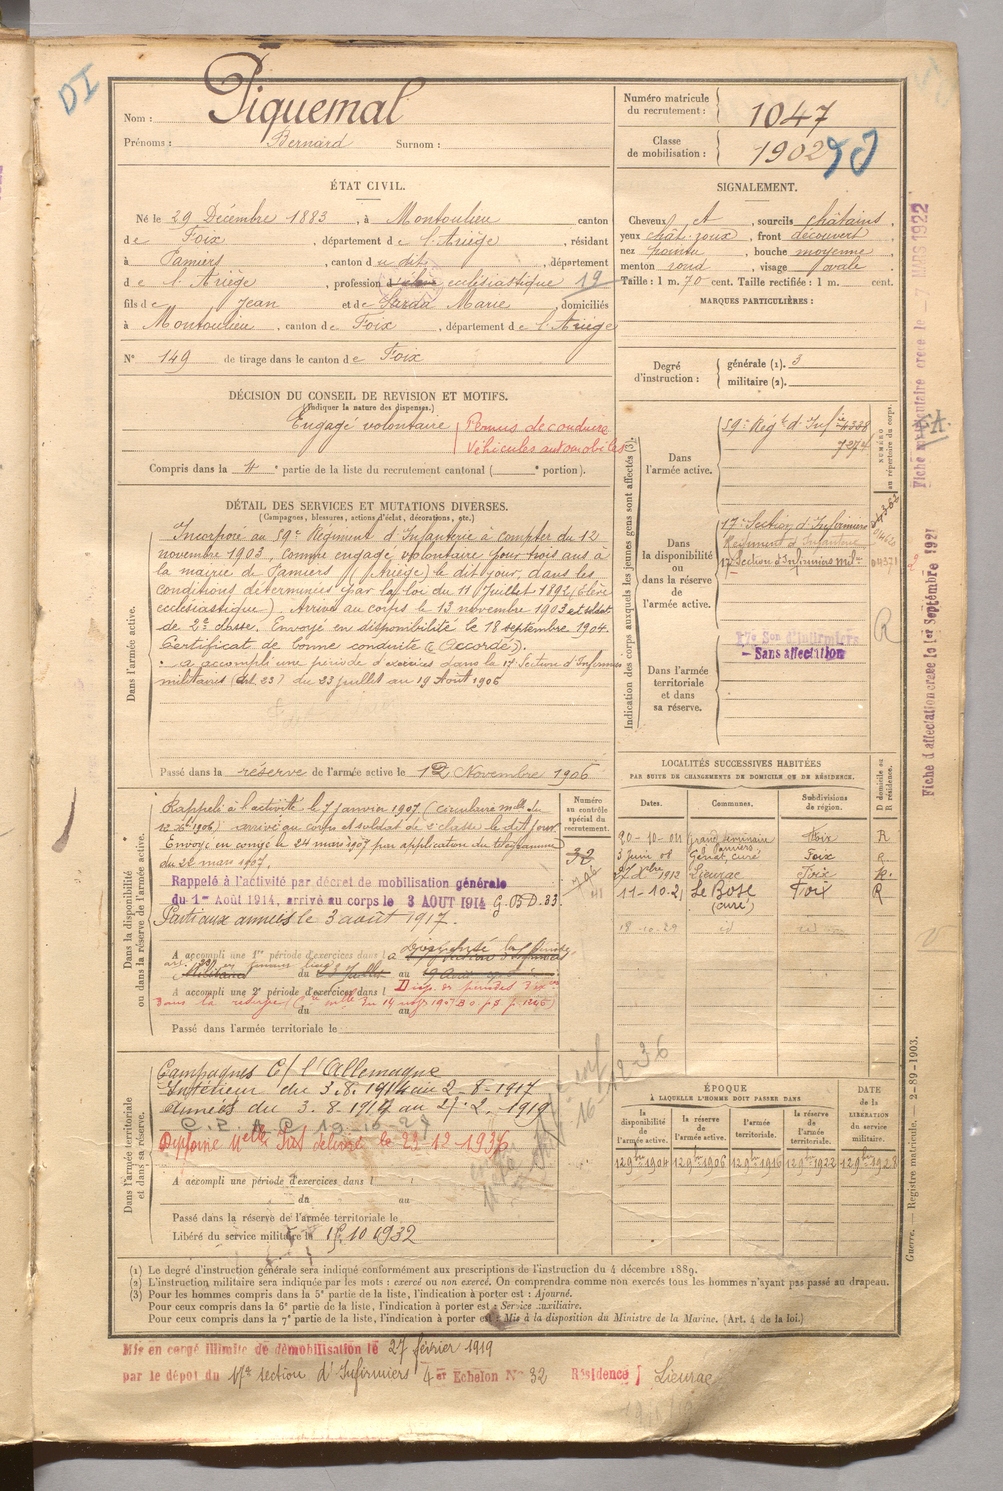 DI
Nom : Piquemal
Prénoms : Bernard Surnom :
Numéro matricule du recrutement : 1047
Classe de mobilisation : 1902
ÉTAT CIVIL.
Né le 29 Décembre 1883, à Montoulieu canton
de Foix, département de l'Ariège, résidant
à Pamiers, canton du dit, département
de l'Ariège, profession d'élève ecclésiastique 19
fils de Jean et de Sarda Marie, domiciliés
à Montoulieu, canton de Foix, département de l'Ariège
N° 149 de tirage dans le canton de Foix
SIGNALEMENT.
Cheveux et, sourcils châtains,
yeux chât. roux, front découvert
nez pointu, bouche moyenne
menton rond, visage ovale.
Taille : 1 m. 70 cent. Taille rectifiée : 1 m. cent.
MARQUES PARTICULIÈRES :
Degré d'instruction : générale (1). 3
militaire (2).
DÉCISION DU CONSEIL DE REVISION ET MOTIFS.
(Indiquer la nature des dispenses.)
Engagé volontaire
Permis de conduire
Véhicules automobiles
Compris dans la 4e partie de la liste du recrutement cantonal ( e portion).
DÉTAIL DES SERVICES ET MUTATIONS DIVERSES.
(Campagnes, blessures, actions d'éclat, décorations, etc.)
Dans l'armée active.
Incorporé au 59e Régiment d'Infanterie à compter du 12
novembre 1903, comme engagé volontaire pour trois ans à
la mairie de Pamiers (Ariège) le dit jour, dans les
conditions déterminées par la loi du 11 Juillet 1892 (Elève
ecclésiastique). Arrivé au corps le 13 novembre 1903 et soldat
de 2e classe. Envoyé en disponibilité le 18 septembre 1904.
Certificat de bonne conduite « Accordé ».
a accompli une période d'exercices dans la 17e Section d'Infirmiers
militaires (Art. 23) du 23 juillet au 19 Août 1906
Passé dans la réserve de l'armée active le 12 Novembre 1906
Indication des corps auxquels les jeunes gens sont affectés (3).
NUMÉRO au répertoire du corps.
Dans l'armée active.
59e Régt d'Infie 4338
7274
Dans la disponibilité ou dans la réserve de l'armée active.
17e Section d'Infirmiers
Régiment d'Infanterie
17e Section d'Infirmiers mil.
Dans l'armée territoriale et dans sa réserve.
17e Son d'Infirmiers
– Sans affectation
R
Dans la disponibilité ou dans la réserve de l'armée active.
Rappelé à l'activité le 7 janvier 1907 (circulaire melle du
1906) arrivé au corps et soldat de 2e classe le dit jour.
Envoyé en congé le 24 mars 1907 par application du télégramme
du 22 mars 1907.
Rappelé à l'activité par décret de mobilisation générale
du 1er Août 1914, arrivé au corps le 3 AOUT 1914 G.B.D. 33
Parti aux armées le 3 août 1917.
A accompli une 1re période d'exercices dans l
Militaires du 23 Juillet au 19 Août
A accompli une 2e période d'exercices dans l
du au
Passé dans l'armée territoriale le
Numéro au contrôle spécial du recrutement.
32
LOCALITÉS SUCCESSIVES HABITÉES
PAR SUITE DE CHANGEMENTS DE DOMICILE OU DE RÉSIDENCE.
Dates. Communes. Subdivisions de région. D domicile ou R résidence.
20-10-04 Grand séminaire Pamiers Foix R
3 Juin 08 Génat, curé Foix R
27 Xbre 1912 Lieurac Foix R.
11-10-21 Le Bosc (curé) Foix R
18-10-29 id id
Dans l'armée territoriale et dans sa réserve.
Campagnes C/ l'Allemagne
Intérieur du 3.8.1914 au 2-8-1917
Armées du 3.8.1917 au 27.2.1919
Diplôme délivré le 22-12-1936
A accompli une période d'exercices dans l
du au
Passé dans la réserve de l'armée territoriale le
Libéré du service militaire le 15 10 1932
ÉPOQUE
À LAQUELLE L'HOMME DOIT PASSER DANS
la disponibilité de l'armée active. la réserve de l'armée active. l'armée territoriale. la réserve de l'armée territoriale. DATE de la LIBÉRATION du service militaire.
12 9bre 1904 12 9bre 1906 12 9bre 1916 12 9bre 1922 12 9bre 1928
(1) Le degré d'instruction générale sera indiqué conformément aux prescriptions de l'instruction du 4 décembre 1889.
(2) L'instruction militaire sera indiquée par les mots : exercé ou non exercé. On comprendra comme non exercés tous les hommes n'ayant pas passé au drapeau.
(3) Pour les hommes compris dans la 5e partie de la liste, l'indication à porter est : Ajourné.
Pour ceux compris dans la 6e partie de la liste, l'indication à porter est : Service auxiliaire.
Pour ceux compris dans la 7e partie de la liste, l'indication à porter est : Mis à la disposition du Ministre de la Marine. (Art. 4 de la loi.)
Mis en congé illimité de démobilisation le 27 février 1919
par le dépôt du 17e section d'Infirmiers 4er Echelon N° 32 Résidence Lieurac
Fiche d'affectation créée le 1er Septembre 1921
Guerre. — Registre matricule. — 2-89-1903.